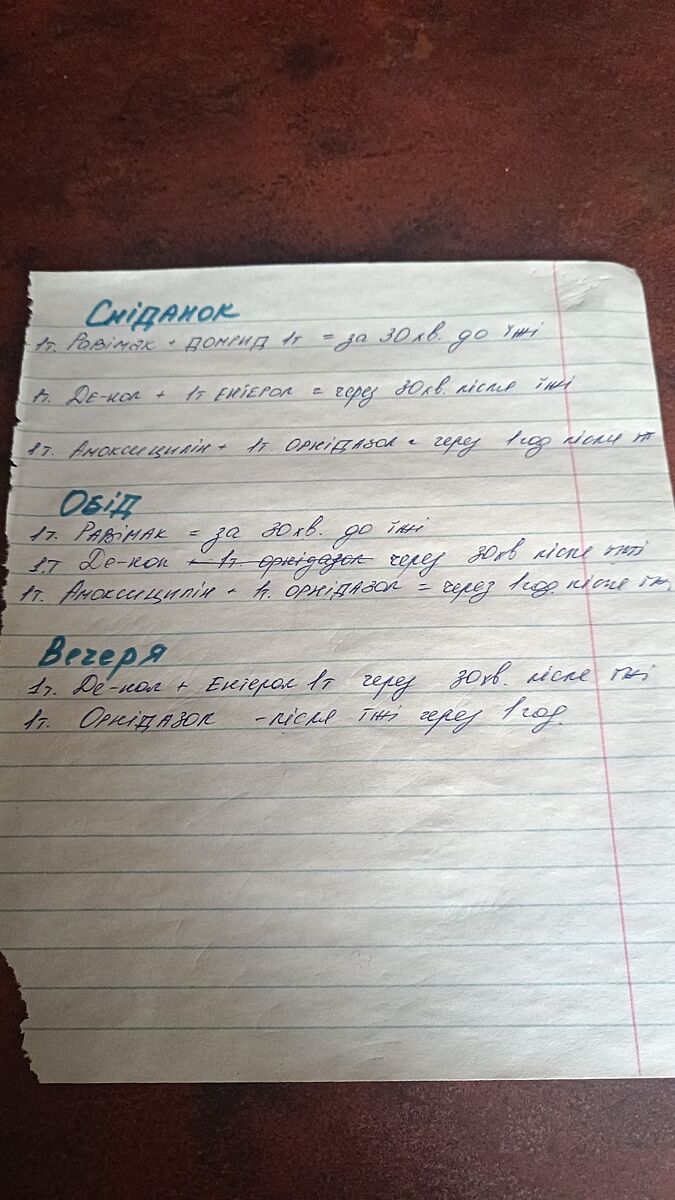 Сніданок
1т. Равімак + домрид 1т = за 30хв. до їжі
1т. Де-нол + 1т ентерол = через 30хв. після їжі
1т. Амоксицилін + 1т. орнідазол = через 1год після їж
Обід
1т. Равімак = за 30хв. до їжі
1т Де-нол + 1т. орнідазол через 30хв після їжі
1т. Амоксицилін + 1т. орнідазол = через 1год. після їж.
Вечеря
1т. Де-нол + Ентерол 1т через 30хв. після їжі
1т. Орнідазол - після їжі через 1год.